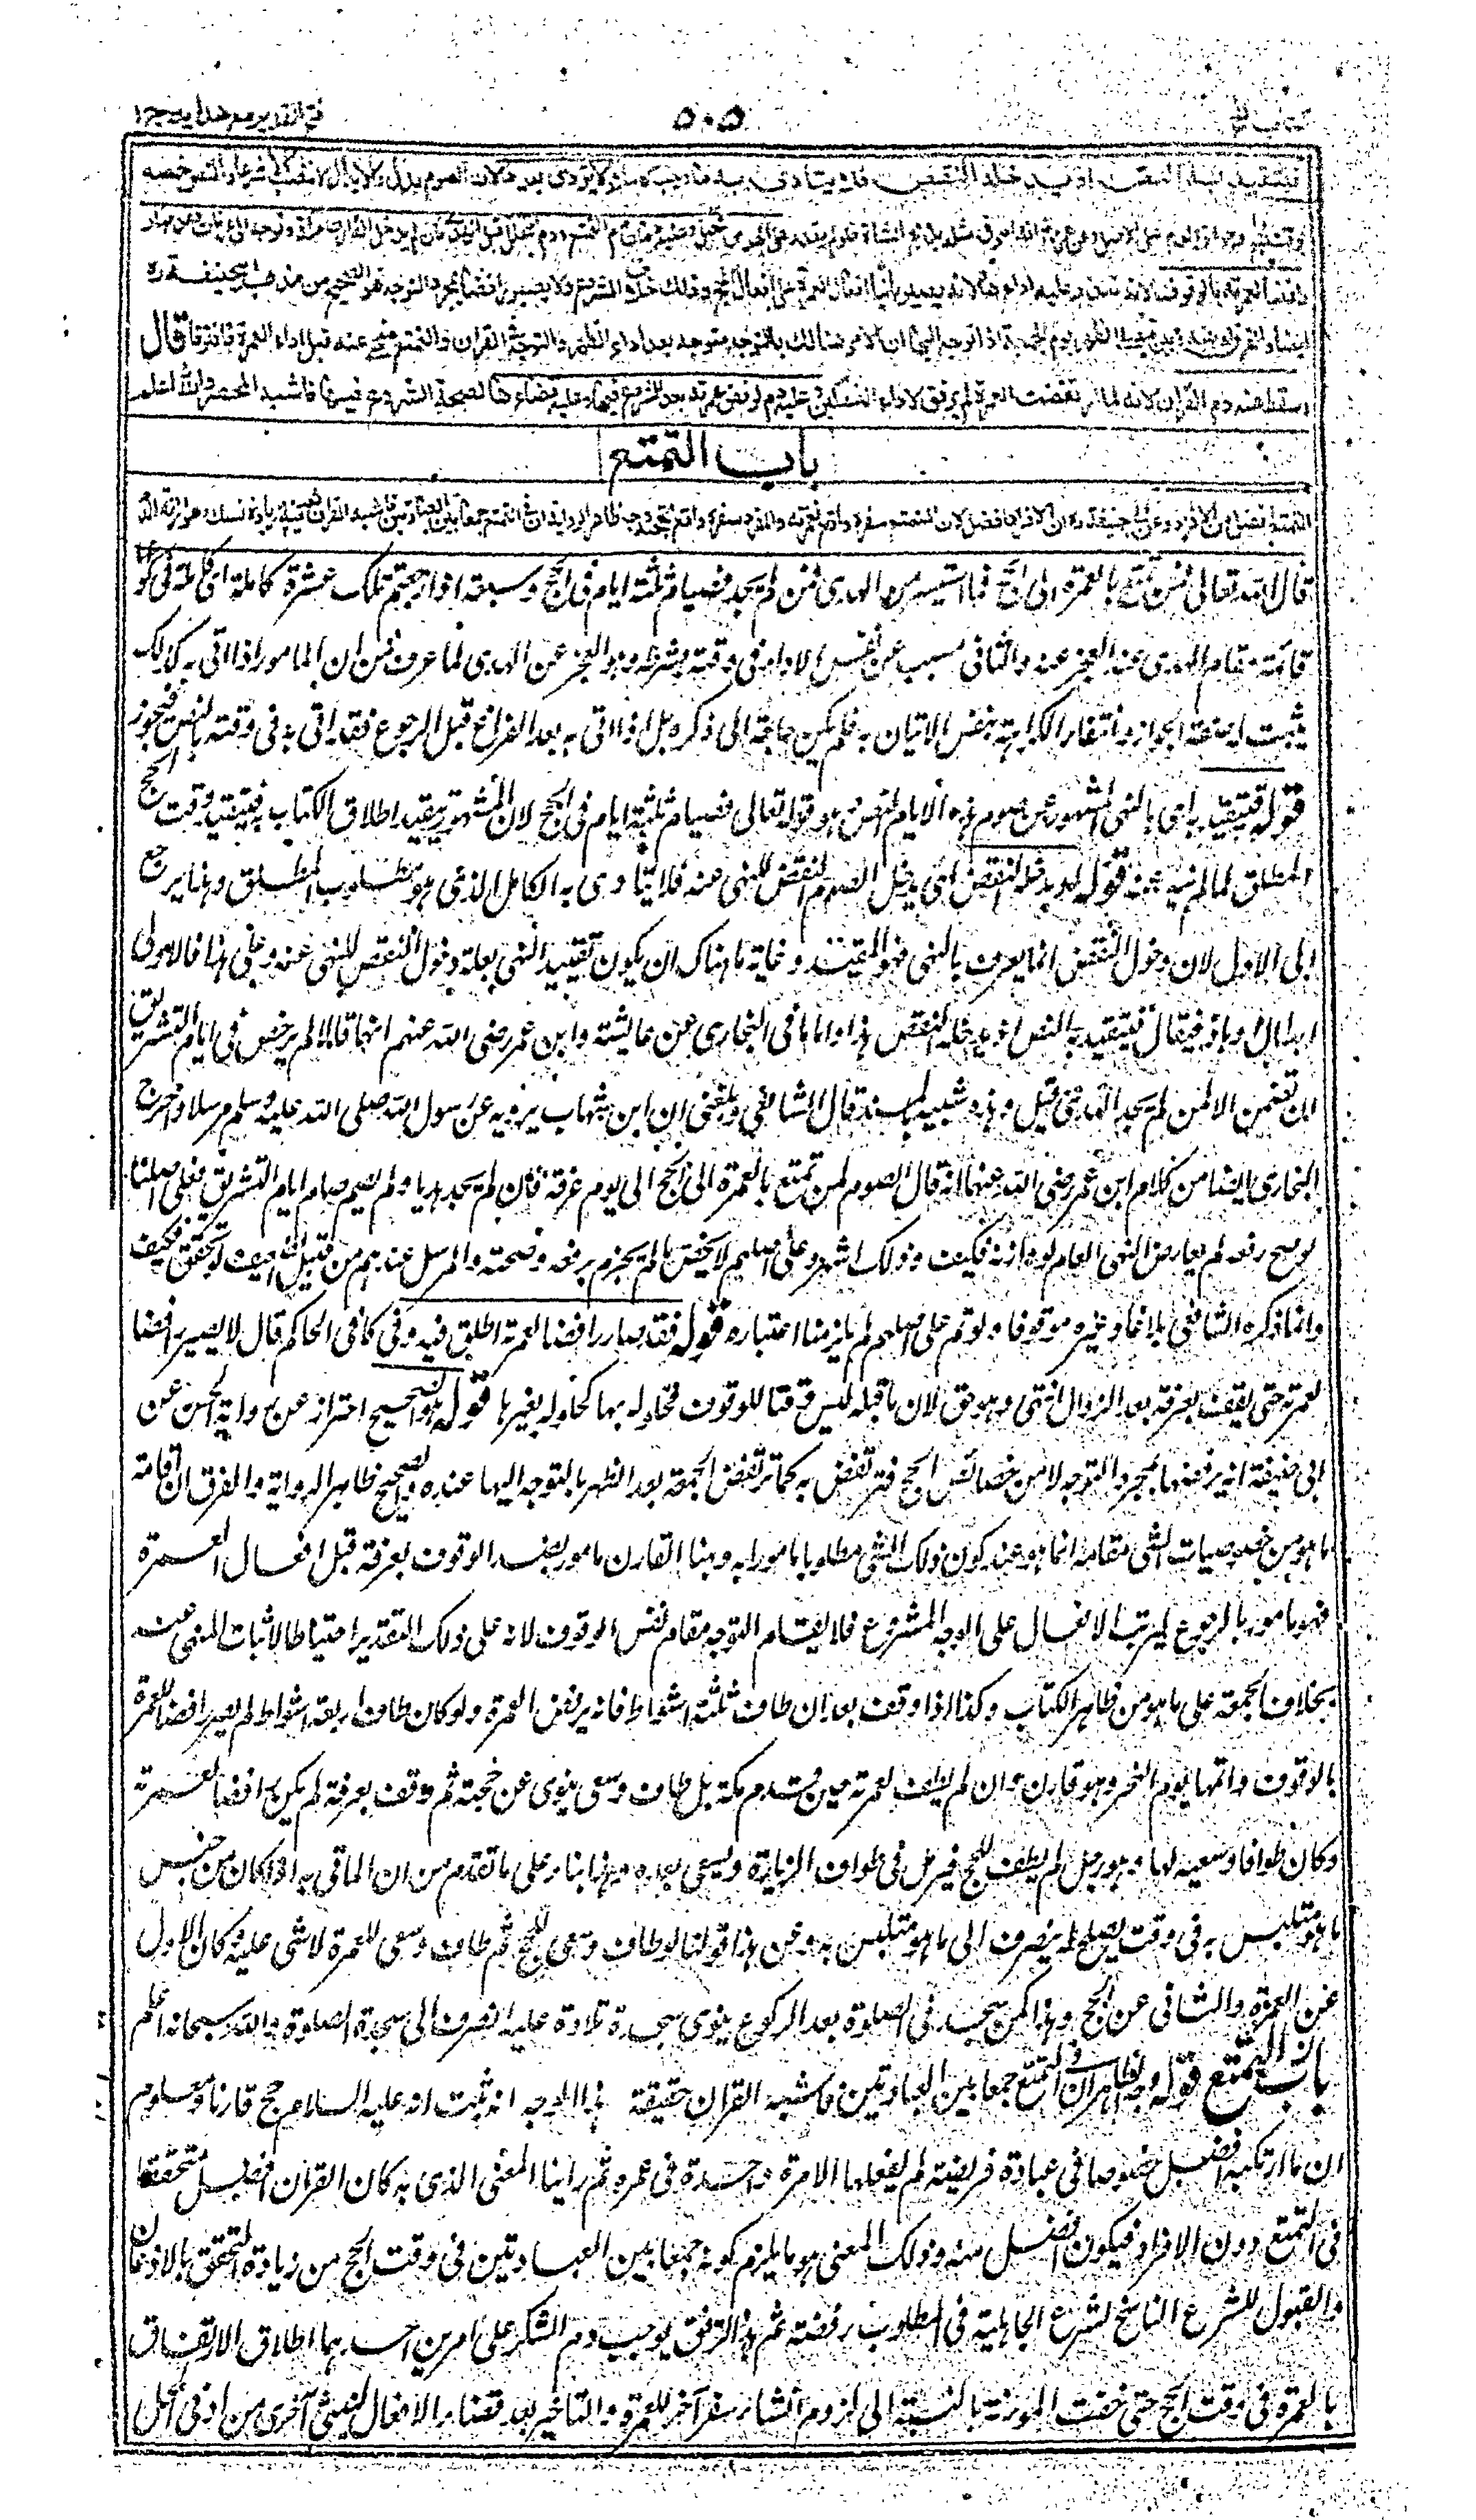 كتاب الحج
۵۰۵
فتح القدير مع هداية ج۱
فيتقيد به النص او يدخله النقص فلا يتادى به ما وجب كاملا ولا يؤدى بعدها لان الصوم بدل والابدال لا تنصب الا شرعا والنص خصه
بوقت الحج وجواز الدم على الاصل وعن عمر انه امر فى مثله بذبح الشاة فلو لم يقدر على الهدى تحلل وعليه دمان دم التمتع ودم التحلل قبل الهدى فان لم يدخل القارن مكة وتوجه الى عرفات فقد صار
رافضا لعمرته بالوقوف لانه تعذر عليه اداءها لانه يصير بانيا افعال العمرة على افعال الحج وذلك خلاف المشروع ولا يصير رافضا بمجرد التوجه هو الصحيح من مذهب ابى حنيفة ره
ايضا والفرق له بينه وبين مصلى الظهر يوم الجمعة اذا توجه اليها ان الامر هنالك بالتوجه متوجه بعد اداء الظهر والتوجه فى القران والتمتع منهى عنه قبل اداء العمرة فافترقا قال
وسقط عنه دم القران لانه لما ارتفضت العمرة لم يرتفق لاداء النسكين وعليه دم لرفض عمرته بعد الشروع فيها وعليه قضاءها لصحة الشروع فيها فاشبه المحصر والله اعلم
باب التمتع
التمتع افضل من الافراد وعن ابى حنيفة ره ان الافراد افضل لان المتمتع سفره واقع لعمرته والمفرد سفره واقع لحجته وجه ظاهر الرواية ان فى التمتع جمعا بين العبادتين فاشبه القران ثم فيه زيادة نسك وهو اراقة الدم
قال الله تعالى فمن تمتع بالعمرة الى الحج فما استيسر من الهدى فمن لم يجد فصيام ثلثة ايام فى الحج وسبعة اذا رجعتم تلك عشرة كاملة اى كاملة فى كونها
قائمة مقام الهدى عند العجز عنه والثانى مسبب عن نفس الاداء فى وقته بشرطه وهو العجز عن الهدى لما عرف من ان المامور اذا اتى به كذلك
يثبت له صفة الجواز وانتفاء الكراهة بنفس الاتيان به فلم يكن حاجة الى ذكره بل اذا اتى به بعد الفراغ قبل الرجوع فقد اتى به فى وقته بالنص فيجوز
قوله فيتقيد به اى بالنهى المشهور عن صوم هذه الايام النص وهو قوله تعالى فصيام ثلثة ايام فى الحج لان المشهور يتقيد به اطلاق الكتاب فيتقيد وقت الحج
المطلق لما لم ينه عنه قوله او يدخله النقص اى يدخل الصوم النقص للنهى عنه فلا يتادى به الكامل الذى هو مطلوب المطلق وهذا يرجع
الى الاول لان دخول النقص انما يعرف بالنهى فهو المقيد وغاية ما هناك ان يكون تقييد النهى بعلة دخول النقص للنهى عنه وعلى هذا فالاولى
ابدال او باذ فيقال فيتقيد به النص اذ يدخله النقص هذا واما ما فى البخارى عن عائشة وابن عمر رضى الله عنهم انهما قالا لم يرخص فى ايام التشريق
ان تصمن الا لمن لم يجد الهدى قيل وهذا شبيه بالمسند قال الشافعى وبلغنى ان ابن شهاب يرويه عن رسول الله صلى الله عليه وسلم مرسلا واخرج
البخارى ايضا من كلام ابن عمر رضى الله عنهما انه قال الصوم لمن تمتع بالعمرة الى الحج الى يوم عرفة فان لم يجد هديا ولم يصم صام ايام التشريق فعلى اصلنا
لو صح رفعه لم يعارض النهى العام لو وازنه فكيف وذلك اشهر وعلى اصلهم لا يخص ما لم يجزم برفعه وصحته والمرسل عندهم من قبيل الضعيف لو تحقق فكيف
وانما ذكره الشافعى بلاغا وغيره موقوفا ولو تم على اصلهم لم يلزمنا اعتباره قوله فقد صار رافضا لعمرته اطلق فيه وفى كافى الحاكم قال لا يصير رافضا
لعمرته حتى يقف بعرفة بعد الزوال انتهى وهو حق لان ما قبله ليس وقتا للوقوف فحلوله بها كحلوله بغيرها قوله هو الصحيح احتراز عن رواية الحسن عن
ابى حنيفة انه يرفضها بمجرد التوجه لانه من خصائص الحج فترتفض به كما ترتفض الجمعة بعد الظهر بالتوجه اليها عنده والصحيح ظاهر الرواية والفرق ان اقامة
ما هو من خصوصيات الشى مقامه انما هو عند كون ذلك الشى مطلوبا مامورا به وهنا القارن مامور بضد الوقوف بعرفة قبل افعال العمرة
فهو مامور بالرجوع ليرتب الافعال على الوجه المشروع فلا يقام التوجه مقام نفس الوقوف لانه على ذلك التقدير احتياطا لاثبات المنهى عنه
بخلاف الجمعة على ما هو من ظاهر الكتاب وكذا اذا وقف بعد ان طاف ثلثة اشواط فانه يرفض العمرة ولو كان طاف اربعة اشواط لم يصر رافضا للعمرة
بالوقوف واتمها يوم النحر وهو قارن وان لم يطف لعمرته حين قدم مكة بل طاف وسعى ينوى عن حجته ثم وقف بعرفة لم يكن رافضا لعمرته
وكان طوافا وسعيه لها وهو رجل لم يطف للحج فيرمل فى طواف الزيارة ويسعى بعده وهذا بناء على ما تقدم من ان الماتى به اذا كان من جنس
ما هو متلبس به فى وقت يصلح له ينصرف الى ما هو متلبس به وعن هذا قولنا لو طاف وسعى للحج ثم طاف وسعى للعمرة لا شى عليه وكان الاول
عن العمرة والثانى عن الحج وهذا كمن سجد فى الصلوة بعد الركوع ينوى سجدة تلاوة عليه انصرف الى سجدة الصلوة والله سبحانه اعلم
باب التمتع قوله وجه الظاهر ان فى التمتع جمعا بين العبادتين فاشبه القران حقيقة هذا الوجه انه ثبت انه عليه السلام حج قارنا ومعلوم
ان ما ارتكبه افضل خصوصا فى عبادة فريضة لم يفعلها الا مرة واحدة فى عمره ثم راينا المعنى الذى به كان القران افضل متحققا
فى التمتع دون الافراد فيكون افضل منه وذلك المعنى هو ما يلزم كونه جمعا بين العبادتين فى وقت الحج من زيادة التحقق بالاذعان
والقبول للشرع الناسخ لشرع الجاهلية فى المطلوب رفضه ثم هذا الترفق يوجب دم الشكر على امرين احدهما اطلاق الارتفاق
بالعمرة فى وقت الحج حتى خفت المؤنة بالنسبة الى لزوم انشاء سفر آخر للعمرة والتاخير بعد قضاء الافعال لينشى اخرى من ادنى الحل